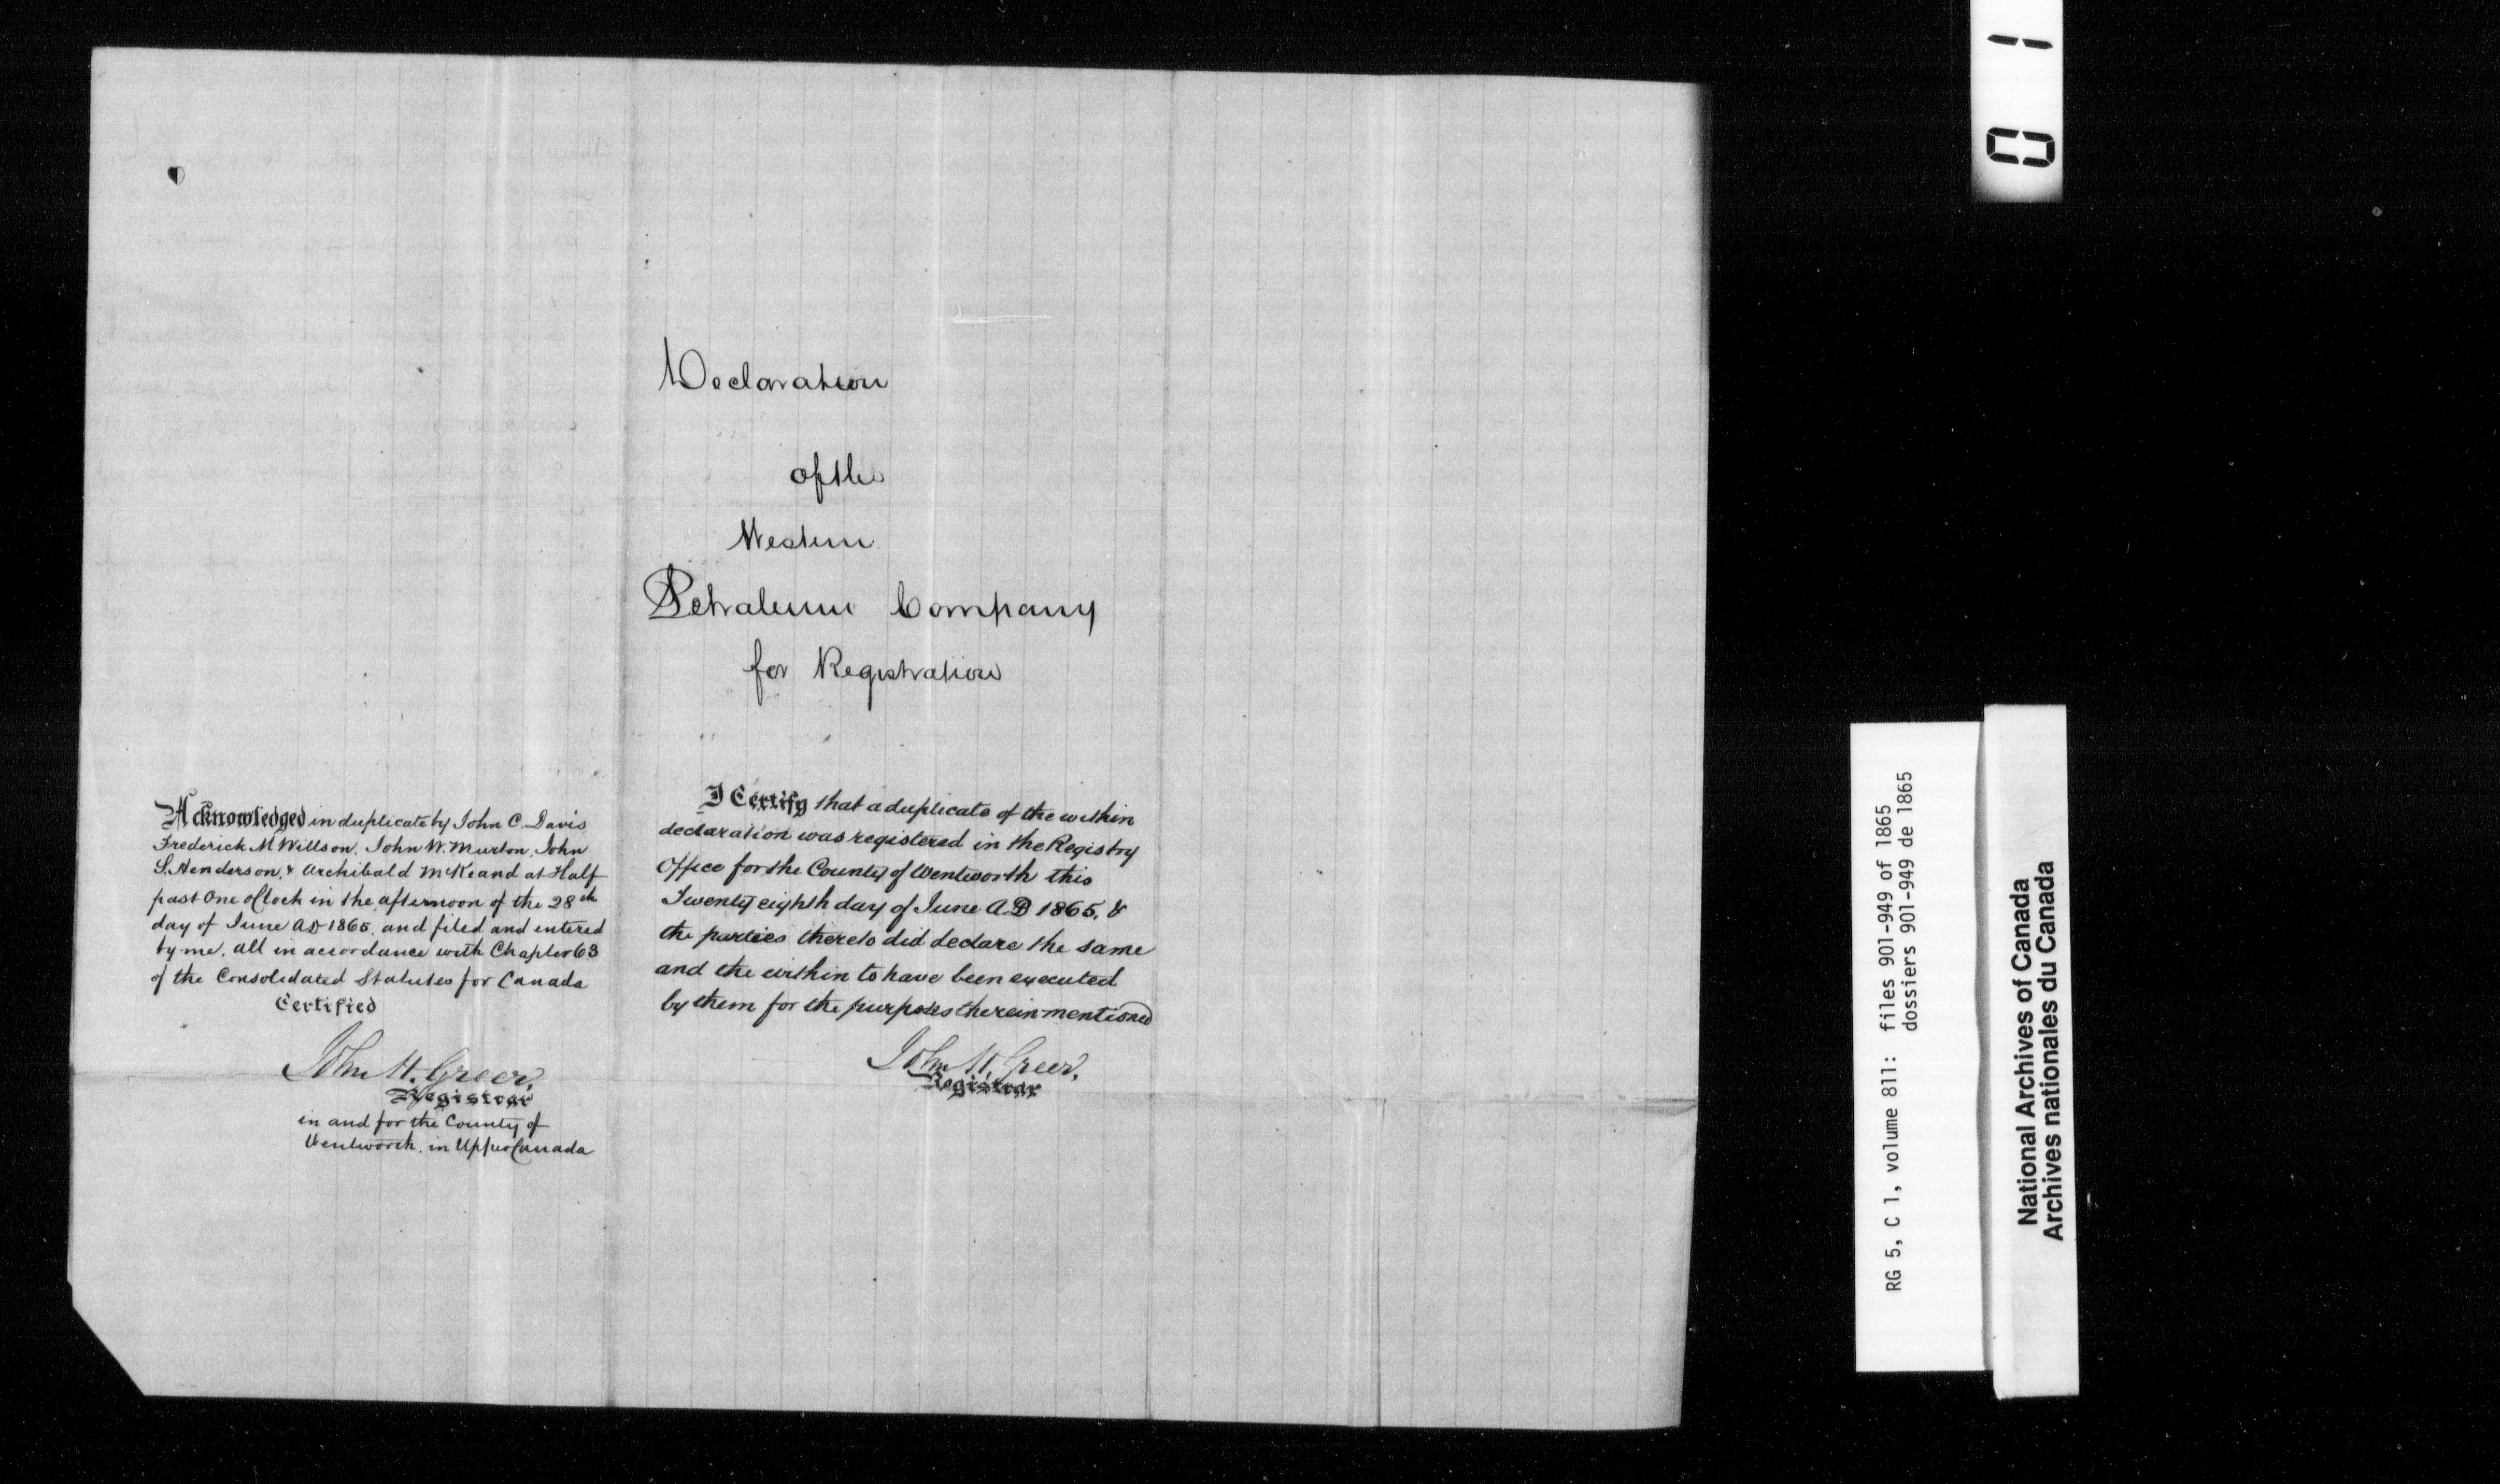 Declaration
of the
Western
Petroleum Company
for Registration
Acknowledged in duplicate by John C. Davis
Frederick M Willson, John W. Murton, John
S. Henderson, & Archibald McKeand at Half
past One oClock in the afternoon of the 28th
day of June AD 1865, and filed and entered
by me, all in accordance with Chapter 63
of the Consolidated Statutes for Canada
Certified
John H. Greer,
Registrar
in and for the County of
Wentworth, in Upper Canada
I Certify that a duplicate of the within
declaration was registered in the Registry
Office for the County of Wentworth this
Twenty eighth day of June AD 1865, &
the parties thereto did declare the same
and the within to have been executed
by them for the purposes therein mentioned
John H. Greer,
Registrar
01
RG 5, C 1, volume 811: files 901-949 of 1865
dossiers 901-949 de 1865
National Archives of Canada
Archives nationales du Canada